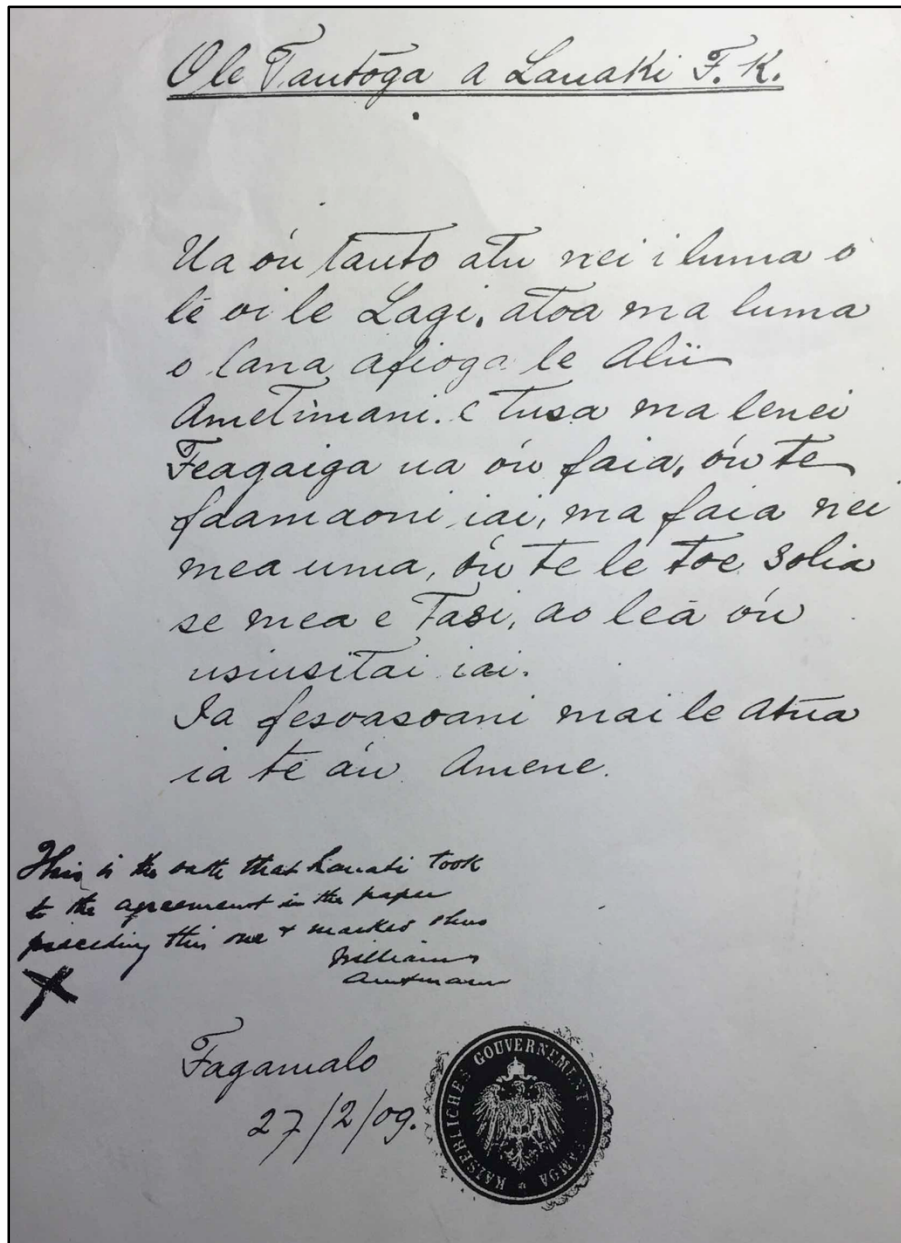 O le Tautoga a Lauaki F. K.
Ua óu tauto atu nei i luma o
lē oi le Lagi, atoa ma luma
o lana afioga le Alii
Ametimani. e tusa ma lenei
Feagaiga ua óu faia, óu te
faamaoni iai, ma faia nei
mea uma, óu te le toe solia
se mea e Tasi, ao leā óu
usiusitai iai.
Ia fesoasoani mai le Atua
ia te áu Amene.
This is the oath that Lauati took
to the agreement in the paper
preceding this one & marked thus
Williams
Amtmann
X
Fagamalo
27/2/09.
KAISERLICHES GOUVERNEMENT SAMOA